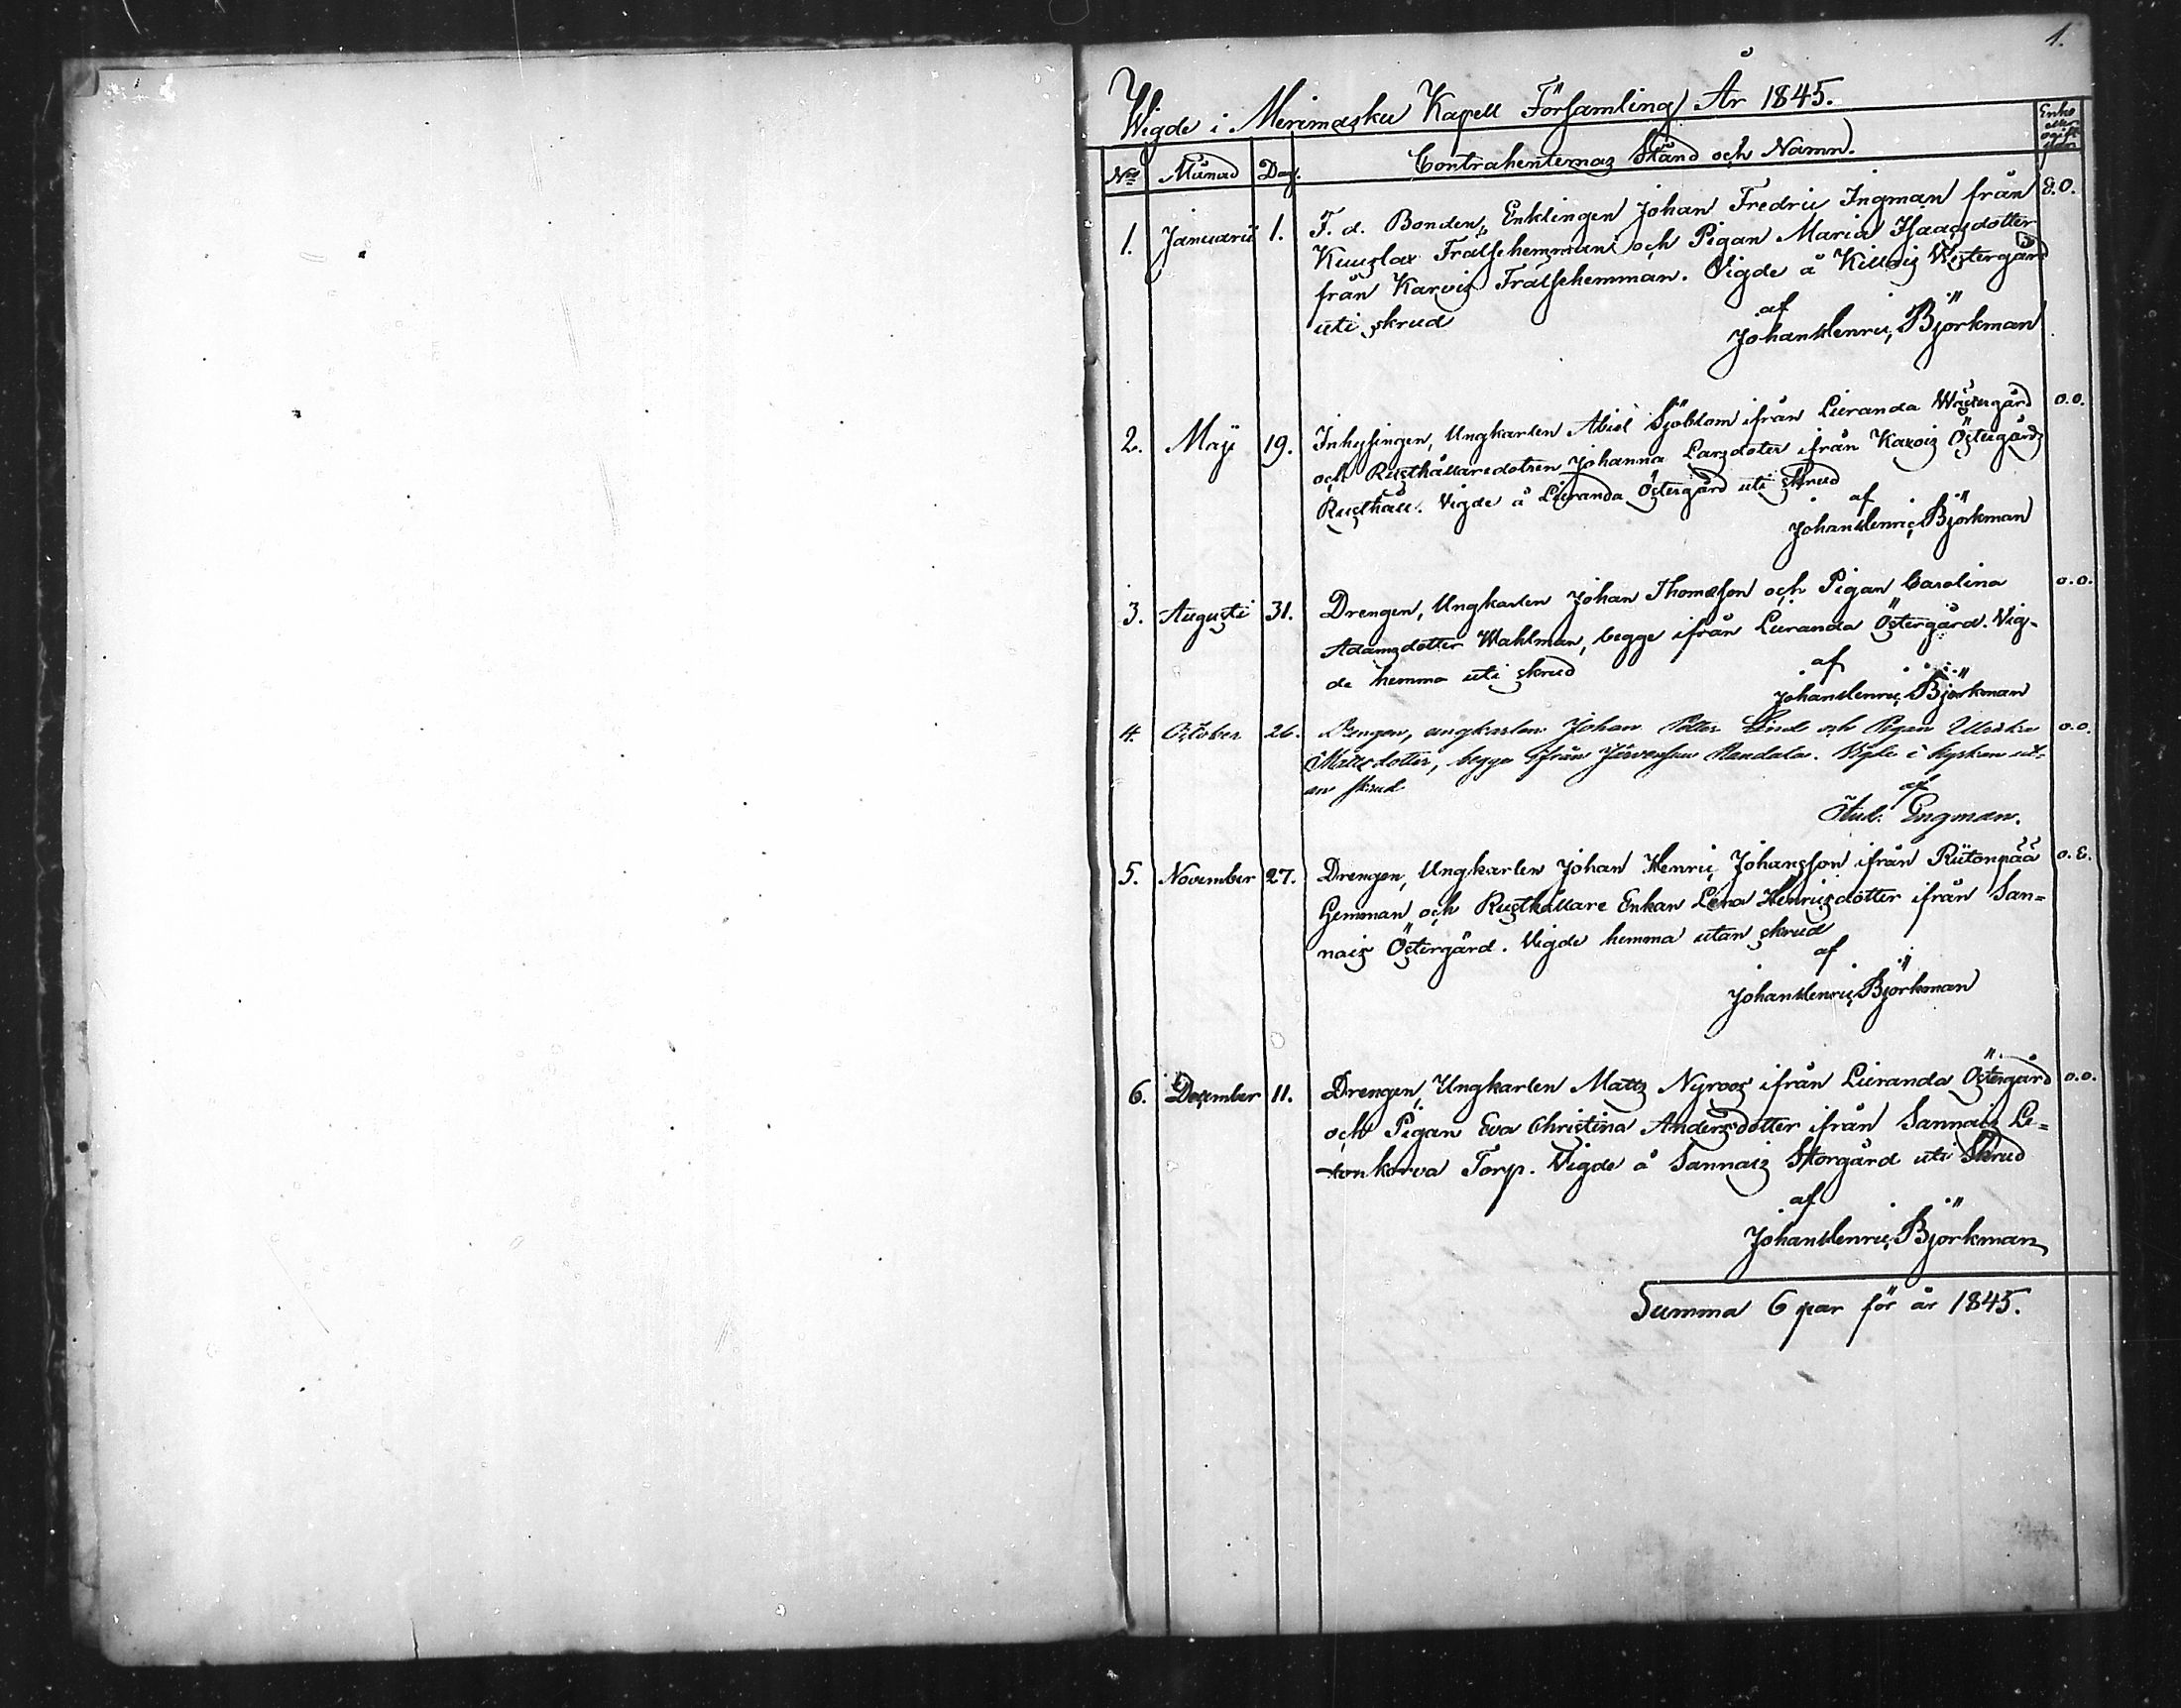 1.
Wigde i Merimasku Kapell Församling År 1845.
No Månad Dag. Contrahenternas Stånd och Namn. Enka eller ogift
1. Januarii 1. F. d. Bonden, Enklingen Johan Fredric Ingman från E.O.
Kuuslax Frälsehemman och Pigan Maria Isaacsdotter
från Karvis Frälsehemman. Vigde å Killais Westergård
uti skrud af
Johan Henric Björkman
2. Maji 19. Inhysingen, Ungkarlen Abiel Sjöblom ifrån Lieranda Westergård o.o.
och Rusthållaredotren Johanna Larsdoter ifrån Karvis Östergårds
Rusthåll. Vigde å Lieranda Östergård uti skrud
af
Johan Henric Björkman
3. Augusti 31. Drengen, Ungkarlen Johan Thomasson och Pigan Carolina o.o.
Adamsdotter Wahlman, begge ifrån Lieranda Östergård. Vig-
de hemma uti skrud af
Johan Henric Björkman
4. October 26. Drengen, ungkarlen Johan Petter Lind och Pigan Ulrika o.o.
Mattsdotter, begge ifrån Järvensuu Randala. Vigde i kyrkan ut-
an skrud af
Stud. Engman.
5. November 27. Drengen, Ungkarlen Johan Henric Johansson ifrån Riitonpää o.E.
Hemman och Rusthållare Enkan Lena Henricsdotter ifrån San=
nais Östergård. Vigde hemma utan skrud
af
Johan Henric Björkman
6. December 11. Drengen, Ungkarlen Matts Nyroos ifrån Lieranda Östergård o.o.
och Pigan Eva Christina Andersdotter ifrån Sannais Le=
tonkorva Torp. Vigde å Sannais Storgård uti Skrud
af
Johan Henric Björkman
Summa 6 par för år 1845.